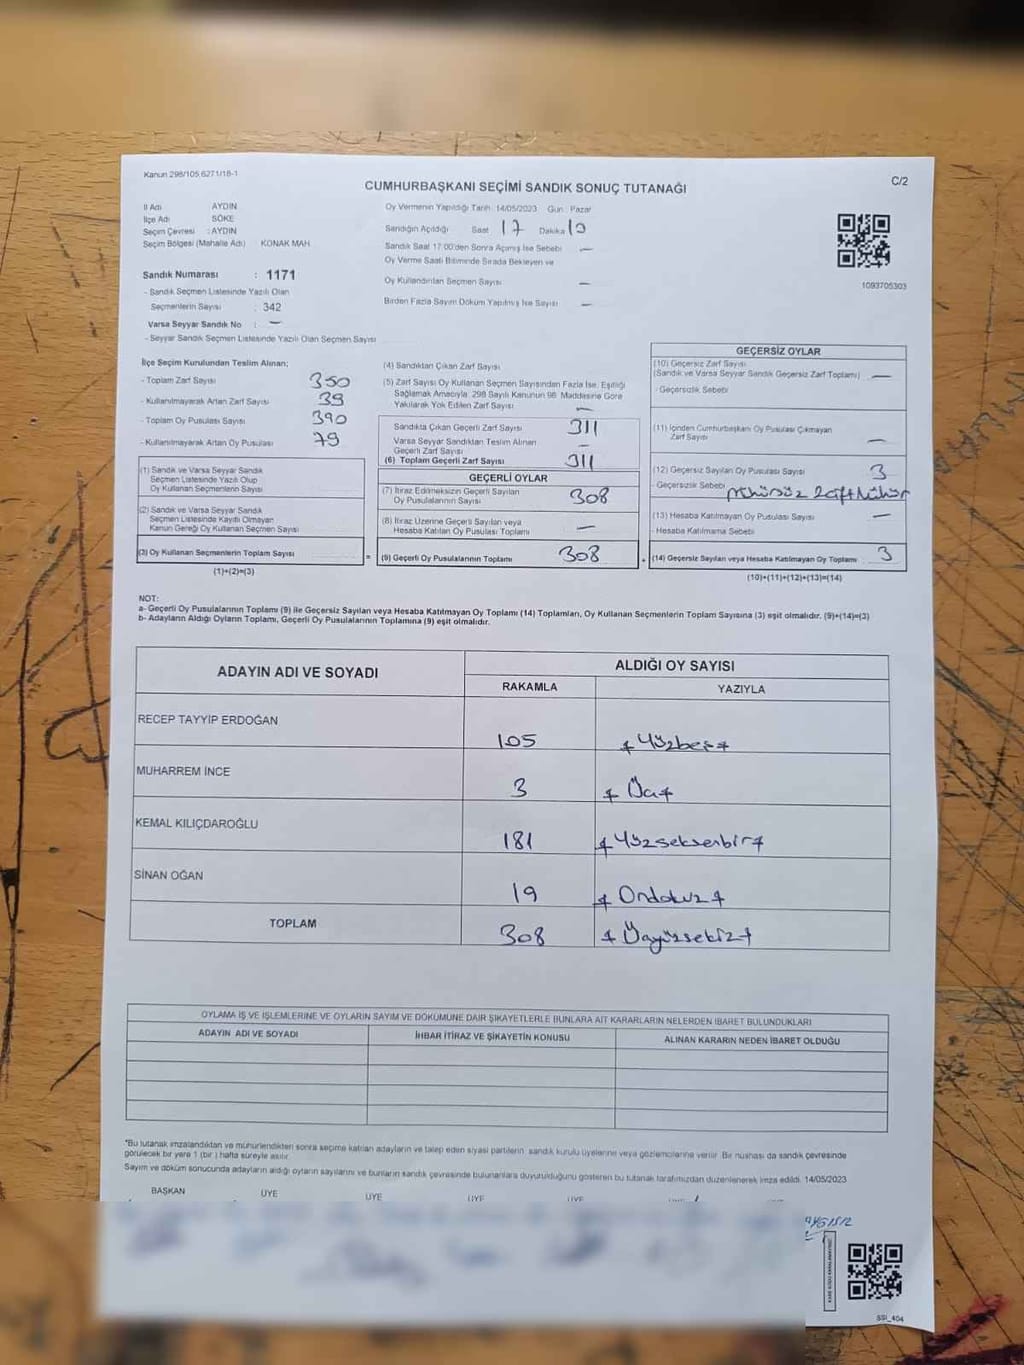 Kanun 298/105,6271/18-1
C/2
CUMHURBAŞKANI SEÇİMİ SANDIK SONUÇ TUTANAĞI
İl Adı AYDIN
İlçe Adı SÖKE
Seçim Çevresi : AYDIN
Seçim Bölgesi (Mahalle Adı) KONAK MAH
Sandık Numarası : 1171
- Sandık Seçmen Listesinde Yazılı Olan
Seçmenlerin Sayısı : 342
Varsa Seyyar Sandık No : —
- Seyyar Sandık Seçmen Listesinde Yazılı Olan Seçmen Sayısı
Oy Vermenin Yapıldığı Tarih: 14/05/2023 Gün : Pazar
Sandığın Açıldığı Saat 17 Dakika
Sandık Saat 17:00'den Sonra Açılmış İse Sebebi —
Oy Verme Saati Bitiminde Sırada Bekleyen ve
Oy Kullandırılan Seçmen Sayısı —
Birden Fazla Sayım Döküm Yapılmış İse Sayısı —
1093705303
İlçe Seçim Kurulundan Teslim Alınan;
- Toplam Zarf Sayısı 350
- Kullanılmayarak Artan Zarf Sayısı 39
- Toplam Oy Pusulası Sayısı 390
- Kullanılmayarak Artan Oy Pusulası 79
(1) Sandık ve Varsa Seyyar Sandık
Seçmen Listesinde Yazılı Olup
Oy Kullanan Seçmenlerin Sayısı
(2) Sandık ve Varsa Seyyar Sandık
Seçmen Listesinde Kayıtlı Olmayan
Kanun Gereği Oy Kullanan Seçmen Sayısı
(3) Oy Kullanan Seçmenlerin Toplam Sayısı =
(1)+(2)=(3)
(4) Sandıktan Çıkan Zarf Sayısı
(5) Zarf Sayısı Oy Kullanan Seçmen Sayısından Fazla İse, Eşitliği
Sağlamak Amacıyla 298 Sayılı Kanunun 98. Maddesine Göre
Yakılarak Yok Edilen Zarf Sayısı —
Sandıkta Çıkan Geçerli Zarf Sayısı 311
Varsa Seyyar Sandıktan Teslim Alınan
Geçerli Zarf Sayısı —
(6) Toplam Geçerli Zarf Sayısı 311
GEÇERLİ OYLAR
(7) İtiraz Edilmeksizin Geçerli Sayılan
Oy Pusulalarının Sayısı 308
(8) İtiraz Üzerine Geçerli Sayılan veya
Hesaba Katılan Oy Pusulası Toplamı —
(9) Geçerli Oy Pusulalarının Toplamı 308 +
GEÇERSİZ OYLAR
(10) Geçersiz Zarf Sayısı
(Sandık ve Varsa Seyyar Sandık Geçersiz Zarf Toplamı) —
- Geçersizlik Sebebi
(11) İçinden Cumhurbaşkanı Oy Pusulası Çıkmayan
Zarf Sayısı —
(12) Geçersiz Sayılan Oy Pusulası Sayısı 3
- Geçersizlik Sebebi Mühürsüz 2 çift Mühür
(13) Hesaba Katılmayan Oy Pusulası Sayısı —
- Hesaba Katılmama Sebebi
(14) Geçersiz Sayılan veya Hesaba Katılmayan Oy Toplamı : 3
(10)+(11)+(12)+(13)=(14)
NOT:
a- Geçerli Oy Pusulalarının Toplamı (9) ile Geçersiz Sayılan veya Hesaba Katılmayan Oy Toplamı (14) Toplamları, Oy Kullanan Seçmenlerin Toplam Sayısına (3) eşit olmalıdır. (9)+(14)=(3)
b- Adayların Aldığı Oyların Toplamı, Geçerli Oy Pusulalarının Toplamına (9) eşit olmalıdır.
ADAYIN ADI VE SOYADI
ALDIĞI OY SAYISI
RAKAMLA YAZIYLA
RECEP TAYYİP ERDOĞAN 105 Yüzbeş
MUHARREM İNCE 3 Üç
KEMAL KILIÇDAROĞLU 181 Yüzseksenbir
SİNAN OĞAN 19 Ondokuz
TOPLAM 308 Üçyüzsekiz
OYLAMA İŞ VE İŞLEMLERİNE VE OYLARIN SAYIM VE DÖKÜMÜNE DAİR ŞİKAYETLERLE BUNLARA AİT KARARLARIN NELERDEN İBARET BULUNDUKLARI
ADAYIN ADI VE SOYADI İHBAR İTİRAZ VE ŞİKAYETİN KONUSU ALINAN KARARIN NEDEN İBARET OLDUĞU
*Bu tutanak imzalandıktan ve mühürlendikten sonra seçime katılan adayların ve talep eden siyasi partilerin sandık kurulu üyelerine veya gözlemcilerine verilir. Bir nüshası da sandık çevresinde
görülecek bir yere 1 (bir ) hafta süreyle asılır.
Sayım ve döküm sonucunda adayların aldığı oyların sayılarını ve bunların sandık çevresinde bulunanlara duyurulduğunu gösteren bu tutanak tarafımızdan düzenlenerek imza edildi. 14/05/2023
BAŞKAN ÜYE ÜYE ÜYE ÜYE
SSİ_404